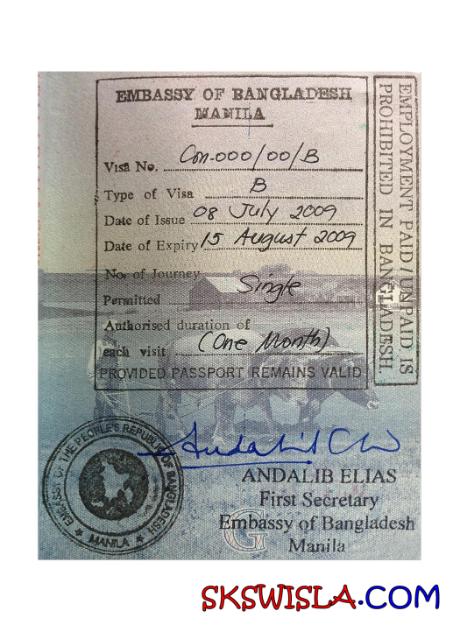 EMBASSY OF BANGLADESH
MANILA
Visa No. Con-000/00/B
Type of Visa B
Date of Issue 08 July 2009
Date of Expiry 15 August 2009
No. of Journey
Permitted Single
Authorised duration of
each visit (One Month)
PROVIDED PASSPORT REMAINS VALID
EMPLOYMENT PAID/UNPAID IS
PROHIBITED IN BANGLADESH.
EMBASSY OF THE PEOPLE'S REPUBLIC OF BANGLADESH
MANILA
ANDALIB ELIAS
First Secretary
Embassy of Bangladesh
Manila
G
SKSWISLA.COM